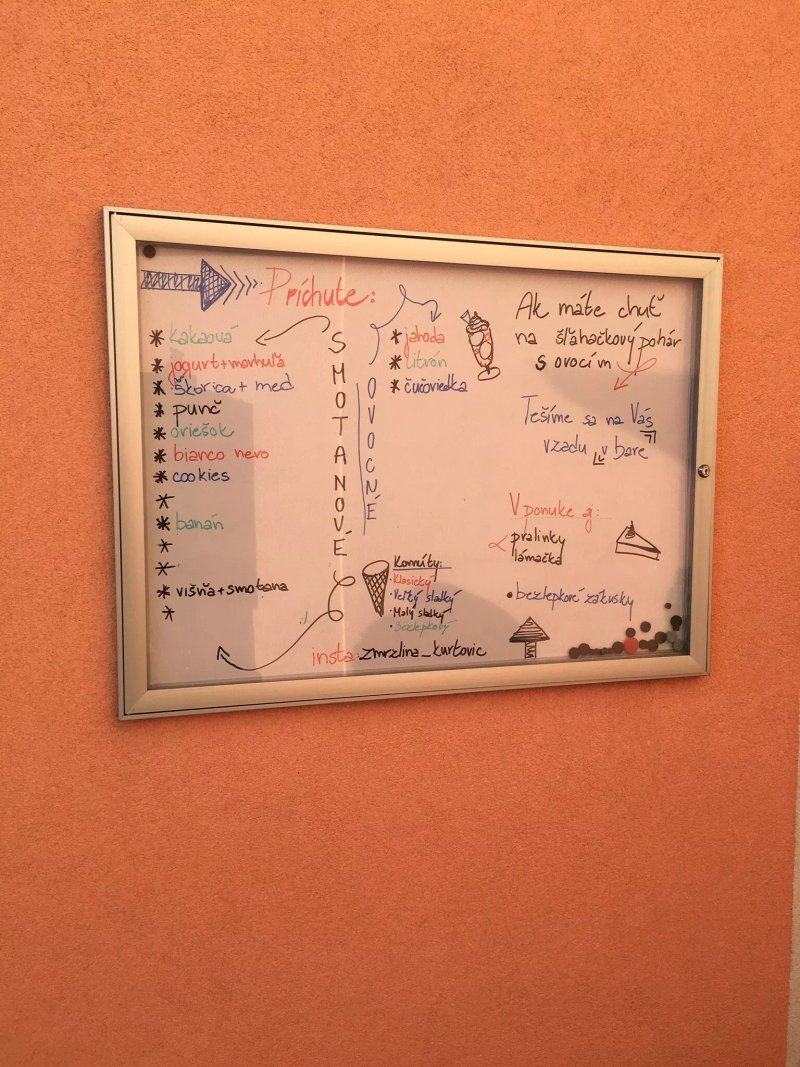 Príchute:
* kakaová
* jogurt+marhuľa
* škorica + med
* punč
* oriešok
* bianco nero
* cookies
*
* banán
*
*
* višňa+smotana
*
SMOTANOVÉ
OVOCNÉ
* jahoda
* citrón
* čučoriedka
Kornúty:
· Klasický
· Veľký sladký
· Malý sladký
· Bezlepkový
:)
insta: zmrzlina_kurtovic
Ak máte chuť
na šľahačkový pohár
s ovocím
Tešíme sa na Vás
vzadu v bare
V ponuke aj:
pralinky
lámačka
• bezlepkové zákusky